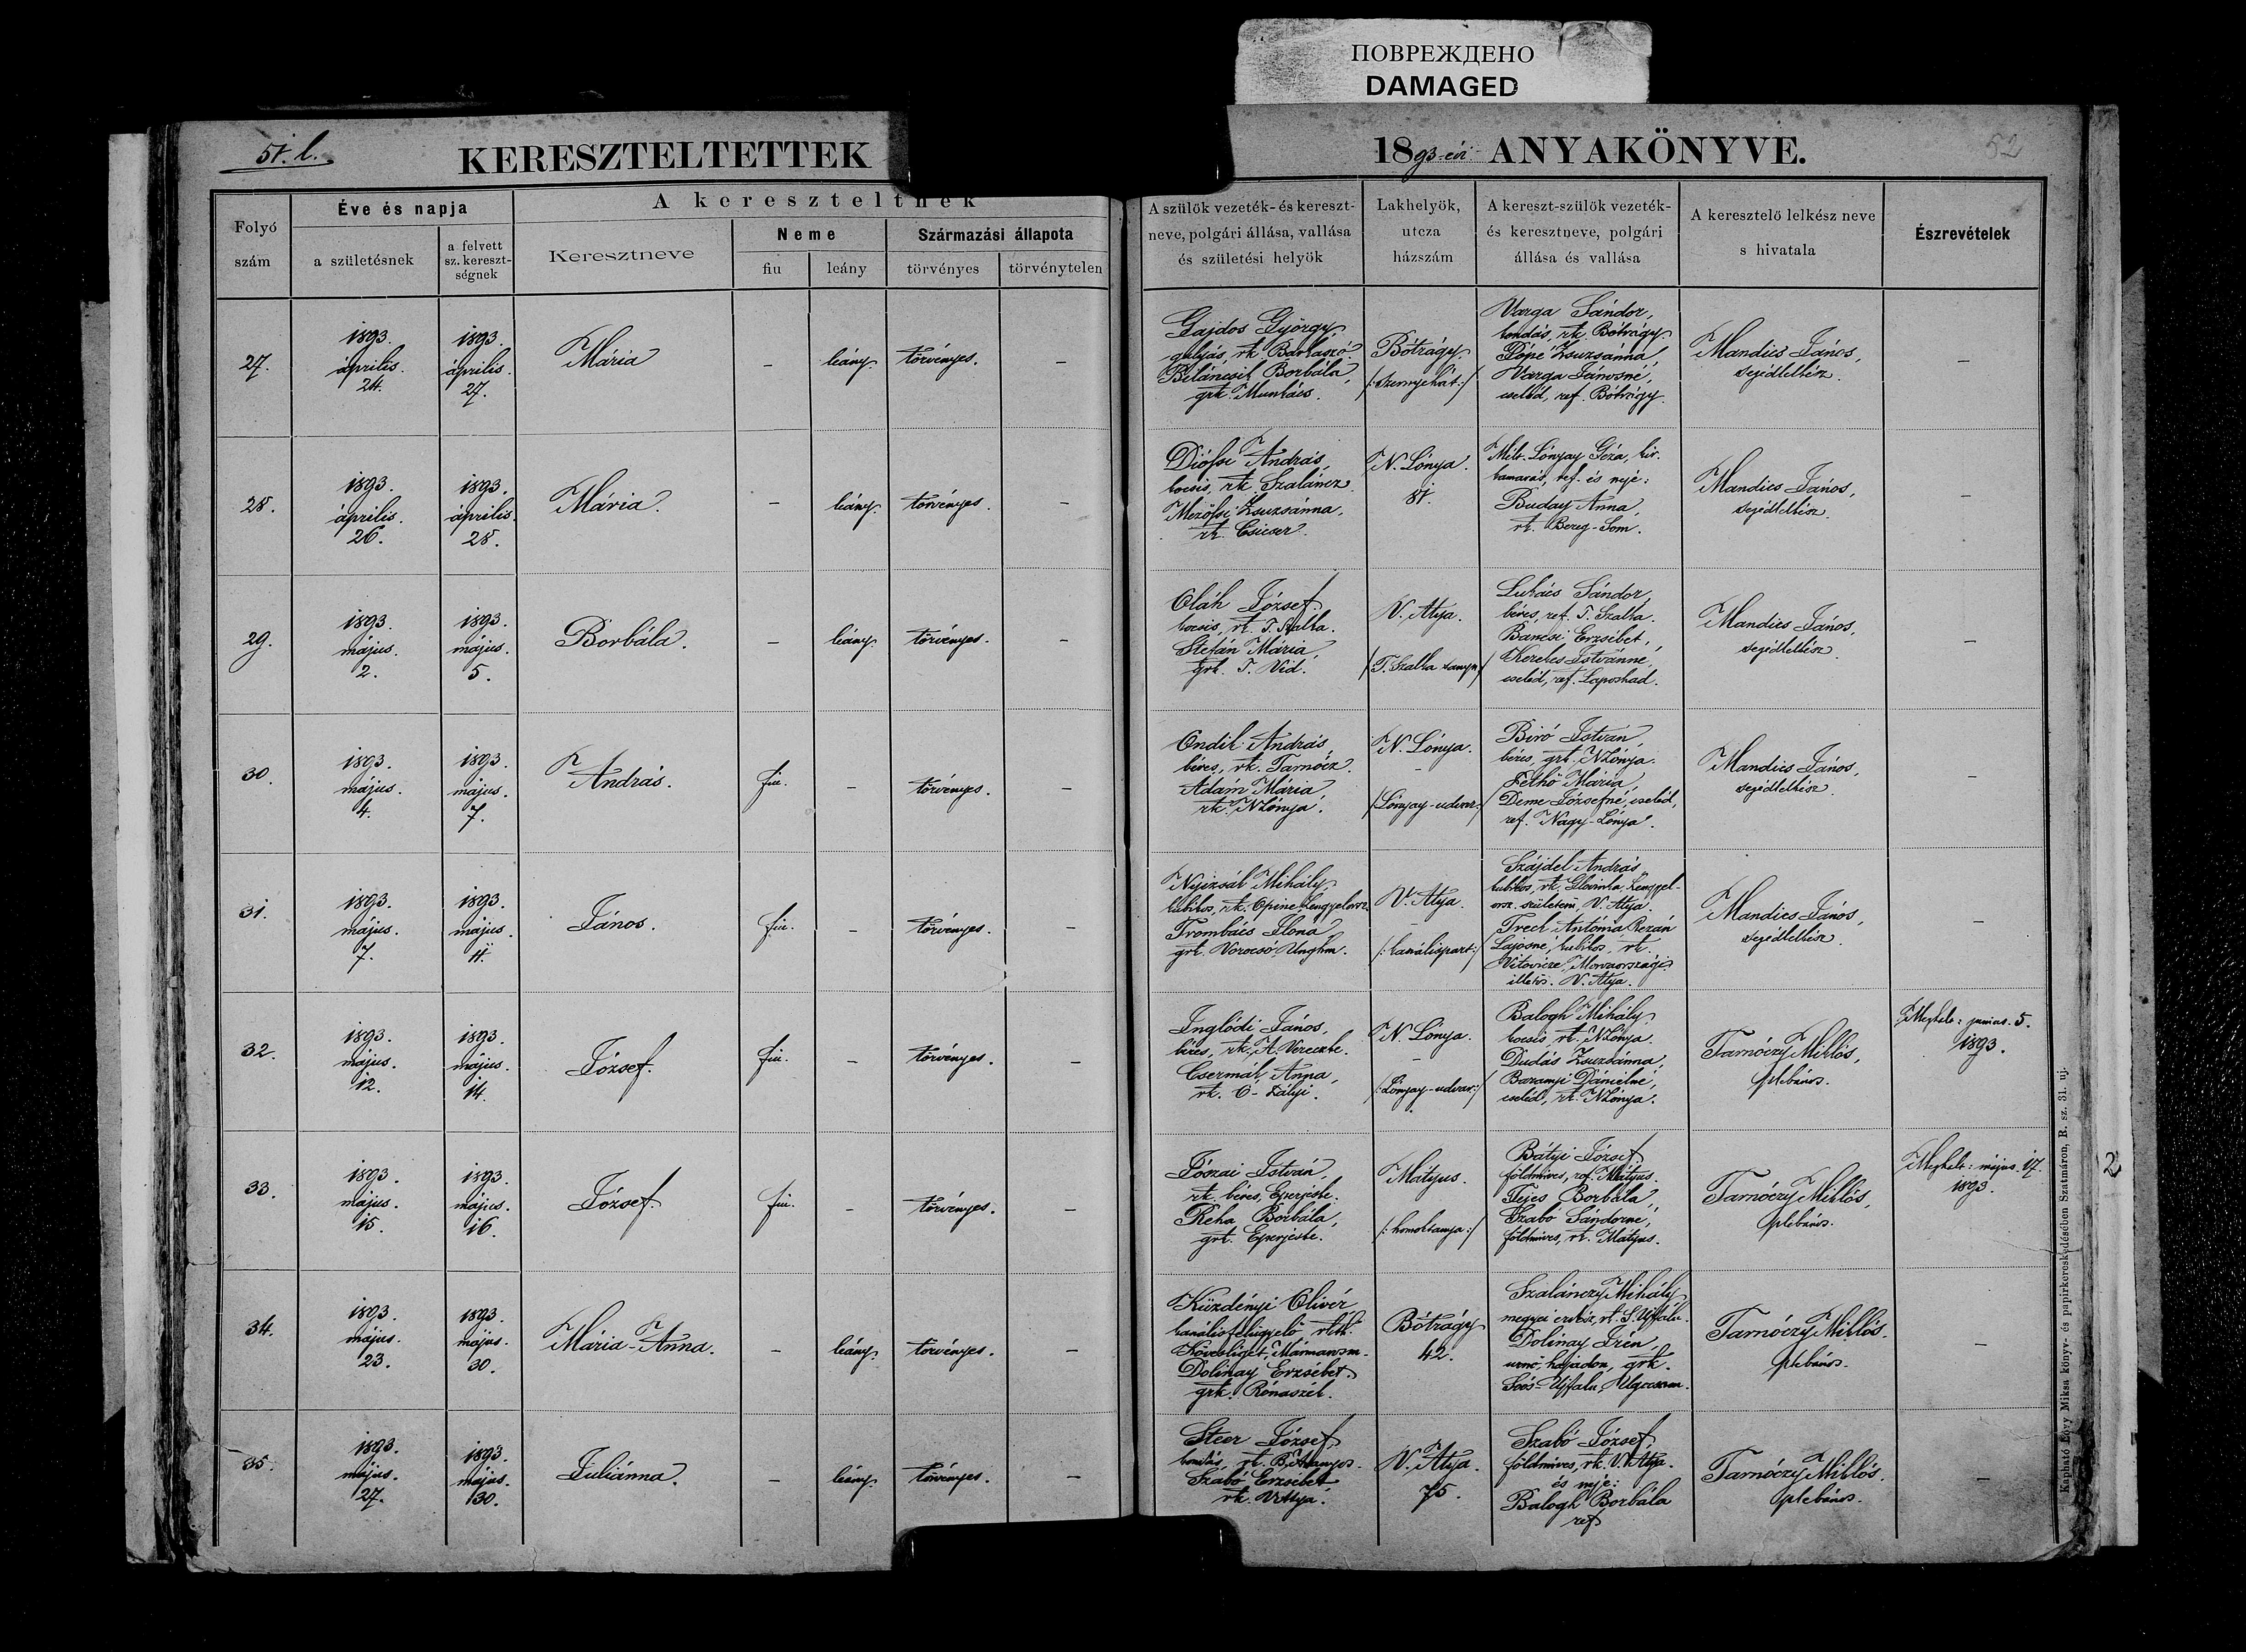 ПОВРЕЖДЕНО
DAMAGED
51. l.
KERESZTELTETTEK
1893-évi ANYAKÖNYVE.
52
Folyó szám
Éve és napja
a születésnek
a felvett sz. kereszt-ségnek
A kereszteltnek
Keresztneve
Neme
fiu
leány
Származási állapota
törvényes
törvénytelen
A szülők vezeték- és kereszt-
neve, polgári állása, vallása
és születési helyök
Lakhelyök,
utcza
házszám
A kereszt-szülök vezeték-
és keresztneve, polgári
állása és vallása
A keresztelő lelkész neve
s hivatala
Észrevételek
27.
1893. április. 24.
1893. április. 27.
Mária
–
leány.
törvényes.
–
Gajdos György
gulyás, rk. Barkaszó.
Biláncsik Borbála,
grk. Munkács.
Bótrágy
/:Szernyehát:/
Varga Sándor,
kondás, rk. Bótrágy.
Pópé Zsuzsánna,
Varga Jánosné,
cseléd, ref. Bótrágy.
Mandics János,
segédlelkész.
–
28.
1893. április. 26.
1893. április. 28.
Mária.
–
leány.
törvényes.
–
Diófsi András,
kocsis, rk. Szaláncz.
Mezőfsi Zsuzsánna,
rk. Csicser.
N. Lónya.
81.
Mélt. Lónyay Géza, kir.
kamarás, ref. és neje:
Buday Anna,
rk. Bereg-Som.
Mandics János,
segédlelkész.
–
29.
1893. május. 2.
1893. május. 5.
Borbála.
–
leány.
törvényes.
–
Oláh József
kocsis, rk. T. Szalka.
Stefán Mária
grk. T. Vid.
V. Atya.
/T. Szalka tanya/
Lukács Sándor,
béres, ref. T. Szalka.
Bancsi Erzsébet,
Kerekes Istvánné,
cseléd, ref. Laposhad.
Mandics János,
segédlelkész
–
30.
1893. május. 4.
1893. május. 7.
András.
fiu.
–
törvényes.
–
Ondik András,
béres, rk. Tarnócz.
Ádám Mária
rk. N.Lónya.
N. Lónya.
–
/:Lónyay-udvar:/
Biró István,
béres, grk. N.Lónya.
Pethő Mária,
Deme Józsefné, cseléd,
ref. Nagy-Lónya.
Mandics János,
segédlelkész.
–
31.
1893. május. 7.
1893. május. 11.
János.
fiu.
–
törvényes.
–
Mihály
kubikos, rk.
Trombács Ilona
grk. Vorocsó Unghm.
V. Atya.
–
/:kanálispart:/
Szájdel András
kubikos, rk.
orsz. születésü, V. Atya.
Antónia Rezán
Lajosné, kubikos, rk.
Morvaországi
illetős. V. Atya.
Mandics János,
segédlelkész.
–
32.
1893. május. 12.
1893. május. 14.
József.
fiu.
–
törvényes.
–
Inglódi János,
béres, rk. A. Vereczke.
Csermák Anna,
rk.
N. Lónya.
–
/:Lónyay-udvar:/
Balogh Mihály
kocsis, rk. N.Lónya.
Dudás Zsuzsánna,
Baranyi Dánielné,
cseléd, rk. N.Lónya.
Tarnóczy Miklós,
plébános.
Meghalt: junius. 5.
1893.
33.
1893. május. 15.
1893. május. 16.
József.
fiu.
–
törvényes.
–
Jószai István,
rk. béres, Eperjeske.
Réha Borbála,
grk. Eperjeske.
Mátyus.
/:homoktanya:/
Bátyi József
földmíves, ref. Mátyus.
Fejes Borbála,
Szabó Sándorné,
földmíves, rk. Mátyus.
Tarnóczy Miklós,
plébános.
Meghalt: május. 17.
1893.
34.
1893. május. 23.
1893. május. 30.
Mária-Anna.
–
leány.
törvényes.
–
Küzdényi Olivér
kanálisfelügyelő rk.
Kövesliget, Mármarosm.
Dolinay Erzsébet.
grk. Rónaszék.
Bótrágy
42.
Szalánczy Mihály
megyei erdész, rk. S. Ujfalu.
Dolinay Irén,
urnő, hajadon, grk.
Soós-Ujfalu, Ugocsam.
Tarnóczy Miklós.
plébános.
–
35.
1893. május. 27.
1893. május. 30.
Juliánna.
–
leány.
törvényes.
–
Steer József
kondás, rk.
Szabó Erzsébet
rk. V.Atya.
V. Atya.
75.
Szabó József
földmíves, rk. V. Atya.
és neje:
Balogh Borbála
ref
Tarnóczy Miklós.
plébános.
–
Kapható Lövy Miksa könyv- és papirkereskedésében Szatmáron, R. sz. 31. uj.
2